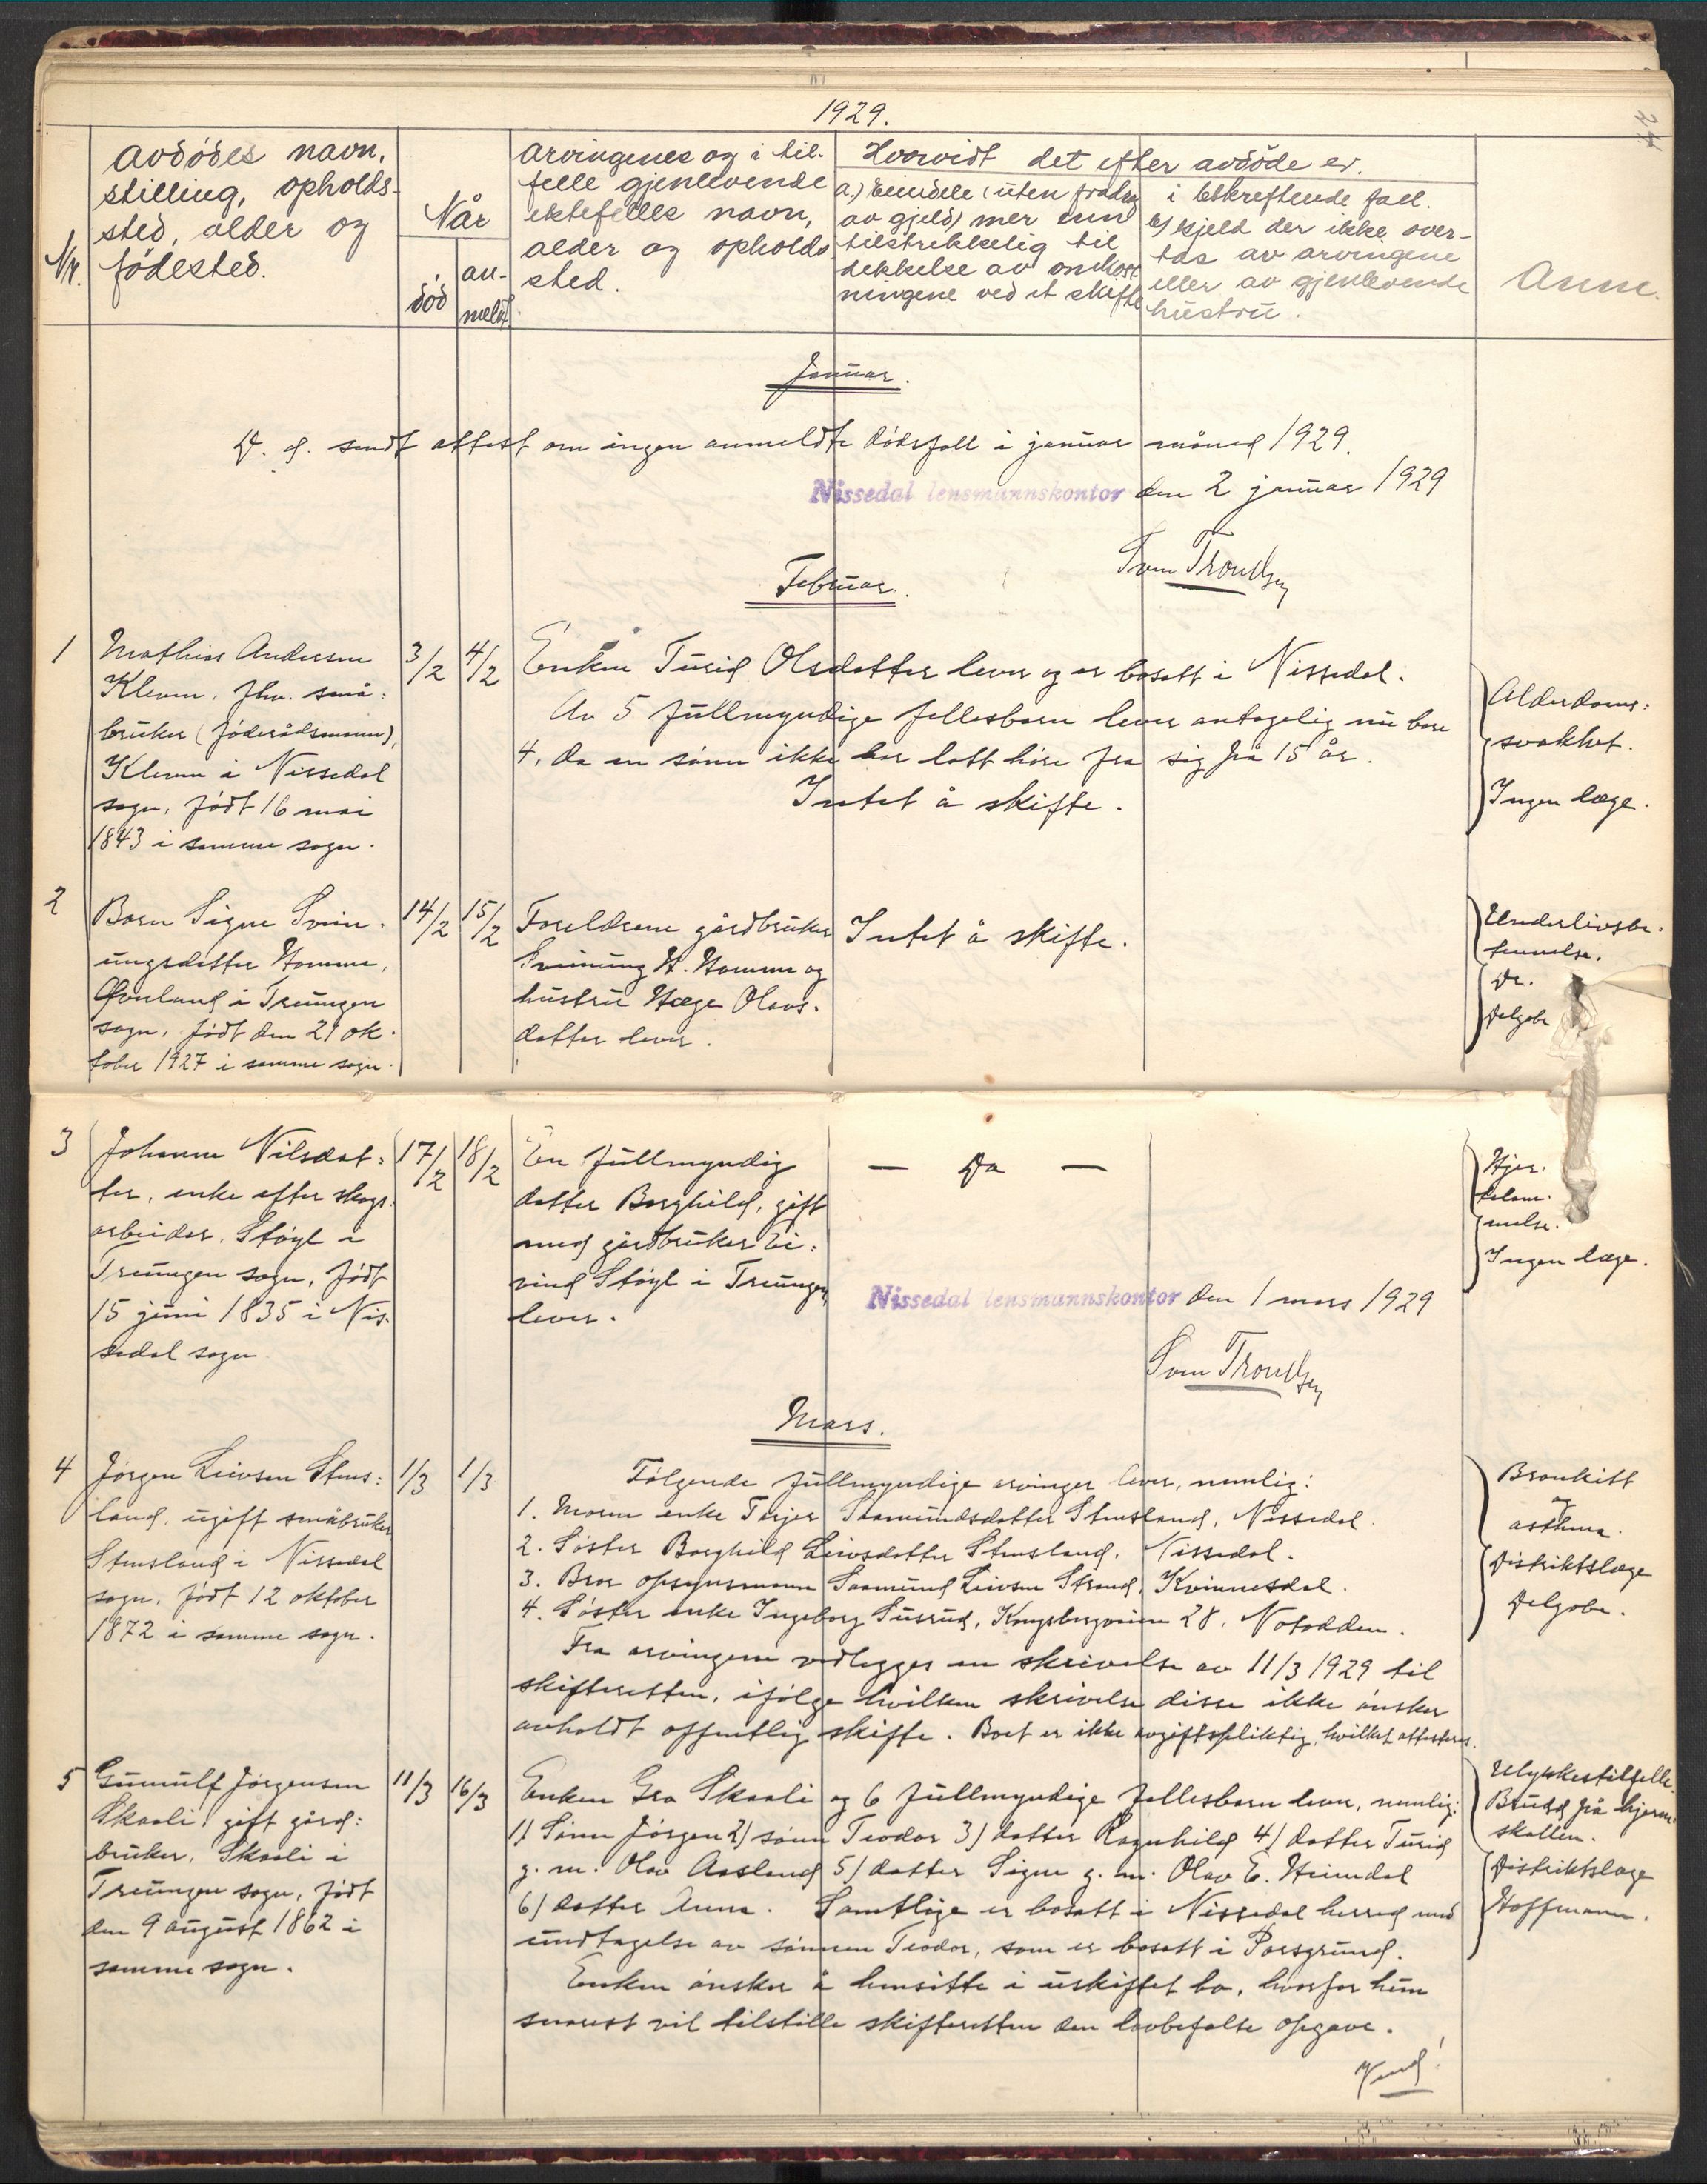 1929.
Nr.
Avdødes navn,
stilling, opholds-
sted, alder og
fødested.
Når
død
an-
meldt
Arvingenes og i til-
felle gjenlevende
ektefelles navn,
alder og opholds-
sted.
Hvorvidt det efter avdøde er.
a.) Eiendele (uten fradrag
av gjeld) mer enn
tilstrekkelig til
dekkelse av omkost-
ningene ved et skifte
i bekreftende fall.
b) gjeld der ikke over-
tas av arvingene
eller av gjenlevende
hustru.
Anm.
Januar.
D. d. sendt attest om ingen anmeldte dødsfall i januar måned 1929.
Nissedal lensmannskontor den 2 januar 1929
Sven Trondsen
Februar.
1
Mathias Andersen
Kleven, fhv. små-
bruker (føderådsmann),
Kleven i Nissedal
sogn, født 16 mai
1843 i samme sogn.
3/2
4/2
Enken Turid Olsdatter lever og er bosatt i Nissedal.
Av 5 fullmyndige fellesbarn lever antagelig nu bare
4, da en sønn ikke har latt høre fra sig på 15 år.
Intet å skifte.
Alderdoms-
svakhet.
Ingen læge.
2
Barn Signe Svein-
ungsdatter Homme,
Øvrland i Treungen
sogn, født den 21 ok-
tober 1927 i samme sogn.
14/2
15/2
Foreldrene gårdbruker
Sveinung H. Homme og
hustru Hæge Olavs-
datter lever.
Intet å skifte.
Underlivsbe-
tennelse.
Dr.
Delgobe
3
Johanne Nilsdat-
ter, enke efter skogs-
arbeider, Støyl i
Treungen sogn, født
15 juni 1835 i Nis-
sedal sogn
17/2
18/2
En fullmyndig
datter Borghild, gift
med gårdbruker Ei-
vind Støyl i Treungen,
lever.
— Da —
Hjer-
telam-
melse.
Ingen læge.
Nissedal lensmannskontor den 1 mars 1929
Sven Trondsen
Mars.
4
Jørgen Leivsen Stens-
land, ugift småbruker
Stensland i Nissedal
sogn, født 12 oktober
1872 i samme sogn.
1/3
1/3
Følgende fullmyndige arvinger lever, nemlig:
1. Moren enke Torjer Saamundsdatter Stensland, Nissedal.
2. Søster Borghild Leivsdatter Stensland, Nissedal.
3. Bror opsynsmann Saamund Leivsen Strand, Kvinnesdal.
4. Søster enke Ingeborg Susrud, Kongsbergveien 28, Notodden.
Fra arvingene vedlegges en skrivelse av 11/3 1929 til
skifteretten, ifølge hvilken skrivelse disse ikke ønsker
avholdt offentlig skifte. Boet er ikke avgiftspliktig, hvilket attesteres.
Bronkitt
og
asthma.
Distriktslæge
Delgobe.
5
Gunnulf Jørgensen
Skaali, gift gård-
bruker, Skaali i
Treungen sogn, født
den 9 august 1862 i
samme sogn.
11/3
16/3
Enken Gro Skaali og 6 fullmyndige fellesbarn lever, nemlig:
1) Sønn Jørgen 2) sønn Teodor 3) datter Ragnhild 4) datter Turid
g. m. Olav Aasland 5) datter Signe g. m. Olav E. Heimdal
6) datter Anne. Samtlige er bosatt i Nissedal herred med
undtagelse av sønnen Teodor, som er bosatt i Porsgrund.
Enken ønsker å hensitte i uskiftet bo, hvorfor hun
snarest vil tilstille skifteretten den lovbefalte opgave.
Ulykkestilfelle.
Brudd på hjerne-
skallen.
Distriktslæge
Hoffmann.
Vend!